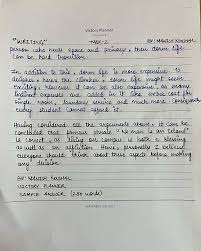 Victory Planner
"WRITING" TASK-2 BY: MANISH KAUSHAL
person who needs space and privacy, then dorm life
can be hard transition.
In addition to this, dorm life is more expensive. To
the dorm life might seem
exciting, however it can be also expensive, as many
indirect expenses are added in it like extra cost for
single room, laundry service and much more. Consequently,
every student cannot afford it.
Having considered the arguments above, it can be
concluded that famous phrase "No man is an Island"
is correct as living on campus is both a blessing
as well as an affliction. Hence, personally I believe
everyone should think about these before making
any decision.
BY: MANISH KAUSHAL
VICTORY PLANNER
SAMPLE ANSWER (280 words)